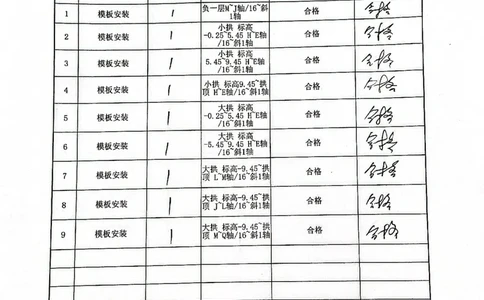 1 模板安装 1 负一层M~J轴/16~斜1轴 合格 合格
2 模板安装 1 小拱 标高-0.25~5.45 H~E轴/16~斜1轴 合格 合格
3 模板安装 1 小拱 标高5.45~9.45 H~E轴/16~斜1轴 合格 合格
4 模板安装 1 小拱 标高9.45~拱顶 H~E轴/16~斜1轴 合格 合格
5 模板安装 1 大拱 标高-0.25~5.45 H~E轴/16~斜1轴 合格 合格
6 模板安装 1 大拱 标高-5.45~9.45 H~E轴/16~斜1轴 合格 合格
7 模板安装 1 大拱 标高-9.45~拱顶 L~M轴/16~斜1轴 合格 合格
8 模板安装 1 大拱 标高-9.45~拱顶 J~L轴/16~斜1轴 合格 合格
9 模板安装 1 大拱 标高-9.45~拱顶 M~Q轴/16~斜1轴 合格 合格